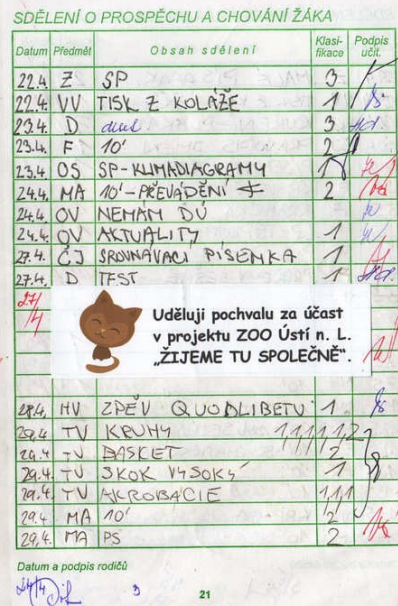 SDĚLENÍ O PROSPĚCHU A CHOVÁNÍ ŽÁKA
Datum Předmět Obsah sdělení Klasi-fikace Podpis učit.
22.4. Z SP 3
22.4. VV TISK Z KOLÁŽE 1
23.4. D 3
23.4. F 10' 2
23.4. OS SP-KLIMADIAGRAMY 1
24.4. MA 10'-PŘEVÁDĚNÍ 2
24.4. OV NEMÁM DÚ
24.4. OV AKTUALITY 1
27.4. ČJ SROVNÁVACÍ PÍSEMKA 1
27.4. D TEST 1
27/4
Uděluji pochvalu za účast
v projektu ZOO Ústí n. L.
„ŽIJEME TU SPOLEČNĚ“.
28.4. HV ZPĚV QUODLIBETU 1
29.4. TV KRUHY 1,1,1,1,2
29.4. TV BASKET 2
29.4. TV SKOK VYSOKÝ 1
29.4. TV AKROBACIE 1,1,1
29.4. MA 10' 2
29.4. MA PS 2
Datum a podpis rodičů
21